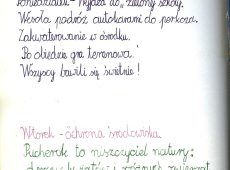 Poniedziałek - Wyjazd do „zielonej szkoły.
Wesoła podróż autokarami do perkoza.
Zakwaterowanie w ośrodku.
Po obiedzie gra terenowa.
Wszyscy bawili się świetnie!
Wtorek - ochrona środowiska
Puchorok to niszczyciel natury:
i różnych zwierząt